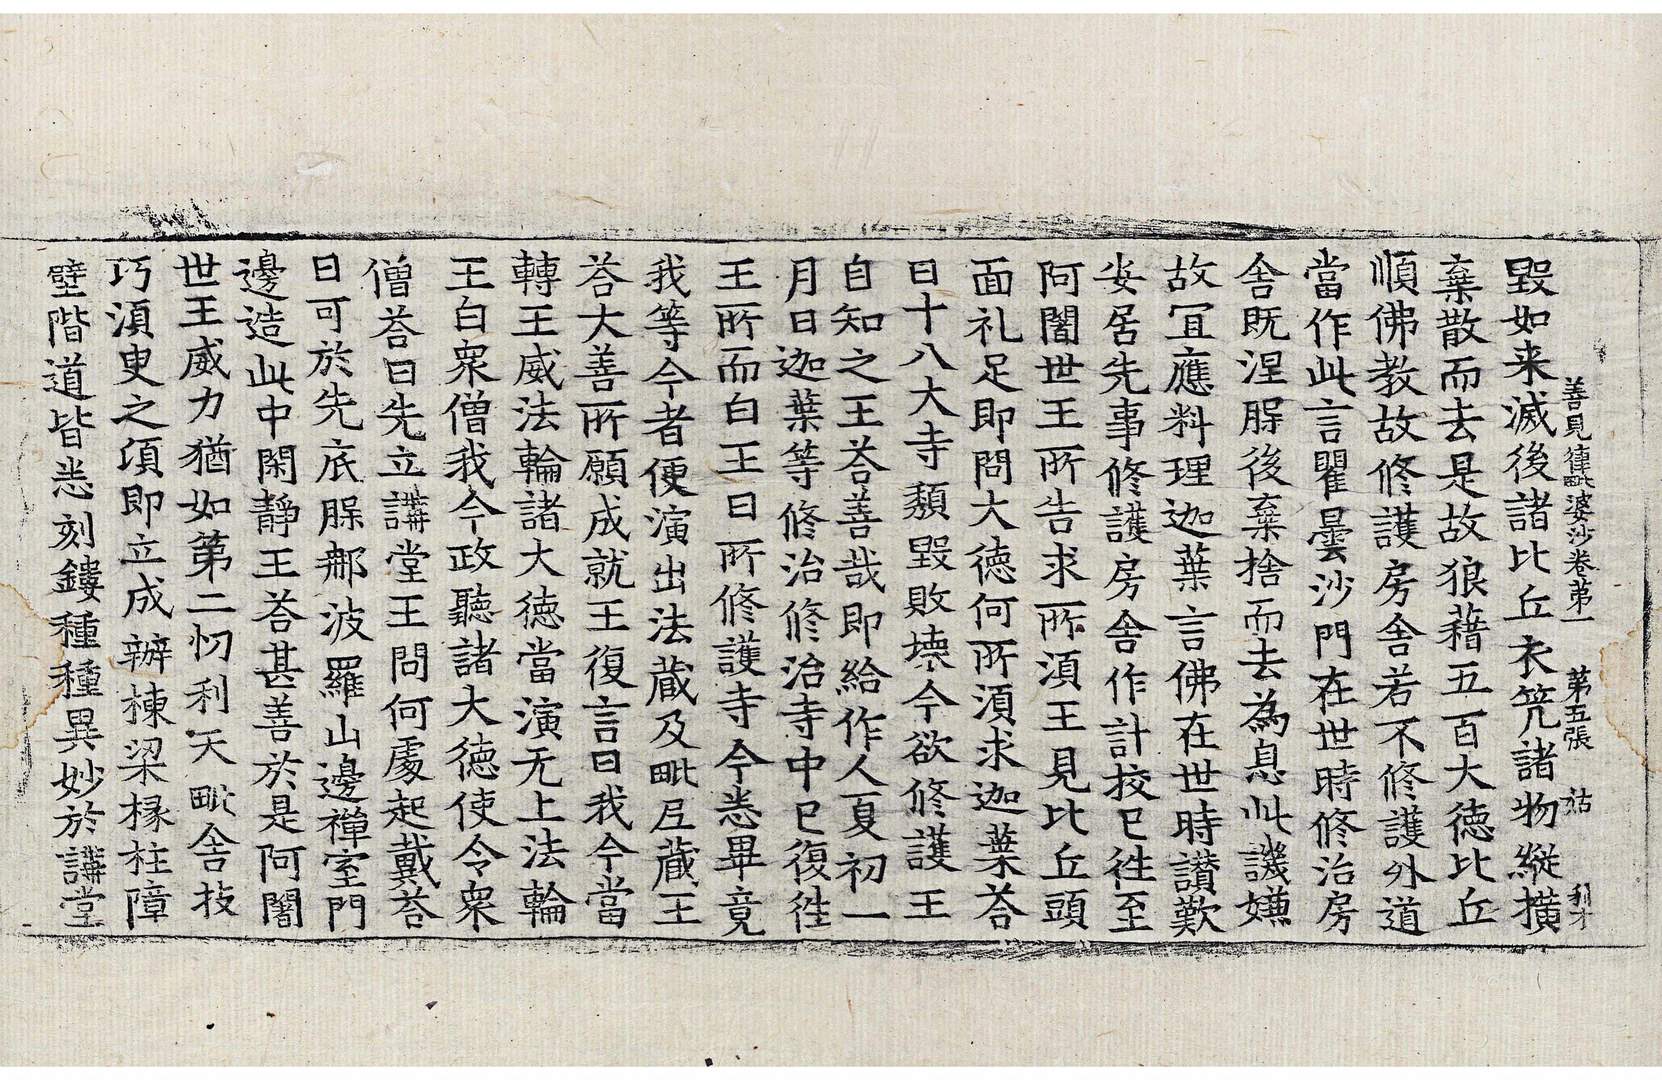 善見律毗婆沙卷第一 第五張 姑
毀如来滅後諸比丘衣凳諸物縱横
棄散而去是故狼藉五百大德比丘
順佛教故修護房舍若不修護外道
當作此言瞿曇沙門在世時修治房
舍既涅䏶後棄捨而去為息此譏嫌
故冝應料理迦葉言佛在世時讃歎
安居先事修護房舍作計挍已徃至
阿闍世王所告求所湏王見比丘頭
面礼足即問大德何所湏求迦葉荅
曰十八大寺頹毀敗壊今欲修護王
自知之王荅善哉即給作人夏初一
月日迦葉等修治修治寺中已復徃
王所而白王曰所修護寺今悉畢竟
我等今者便演出法藏及毗尼藏王
荅大善所願成就王復言曰我今當
轉王威法輪諸大德當演无上法輪
王白衆僧我今政聽諸大德使令衆
僧荅曰先立講堂王問何處起戴荅
曰可於先底䏶郍波羅山邊禪室門
邊造此中閑靜王荅甚善於是阿闍
世王威力猶如第二忉利天毗舍技
巧湏臾之頃即立成辦棟梁椽柱障
壁階道皆悉刻鏤種種異妙於講堂